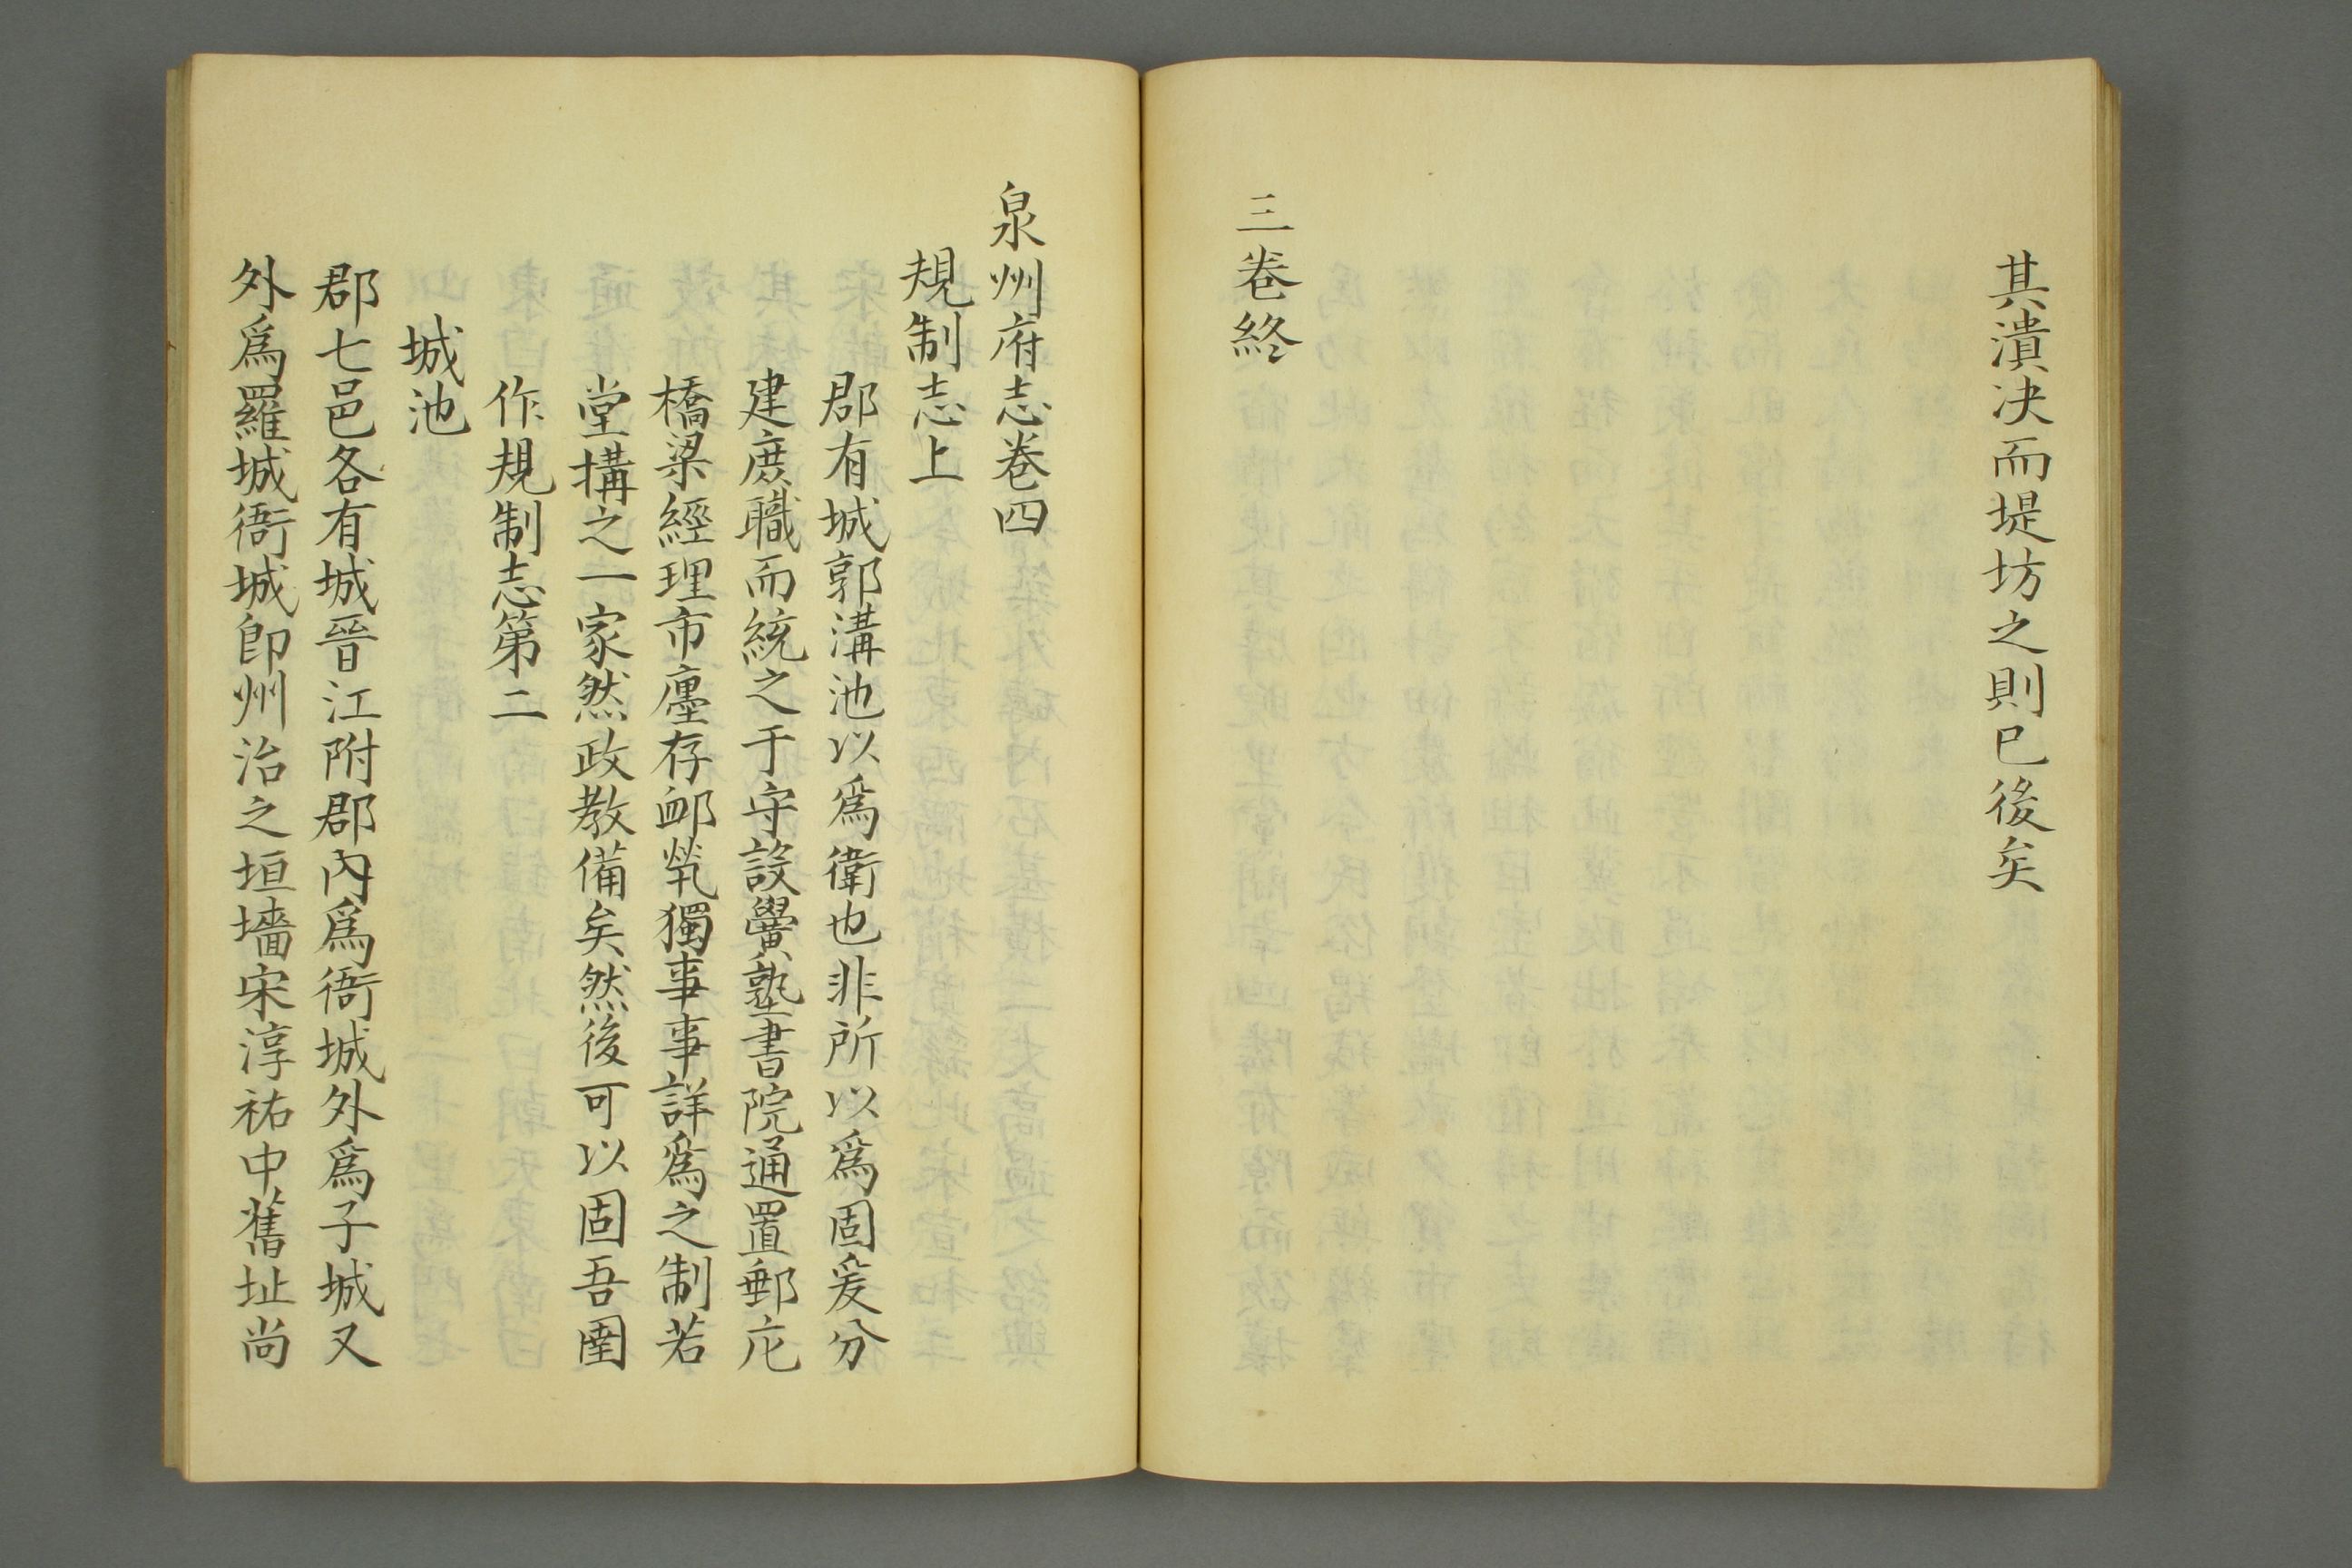 其潰决而堤坊之則已後矣
三卷終
泉州府志卷四
規制志上
郡有城郭溝池以爲衛也非所以爲固爰分
建庶職而統之于守設黌塾書院通置郵庀
橋梁經理市廛存邺煢獨事事詳爲之制若
堂搆之一家然政教備矣然後可以固吾圉
作規制志第二
城池
郡七邑各有城晉江附郡內爲衙城外爲子城又
外爲羅城衙城卽州治之垣墻宋淳祐中舊址尚